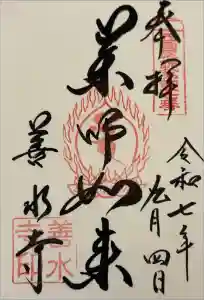 奉拝
令和七年
五月四日
薬師如来
善水寺
善水
寺印